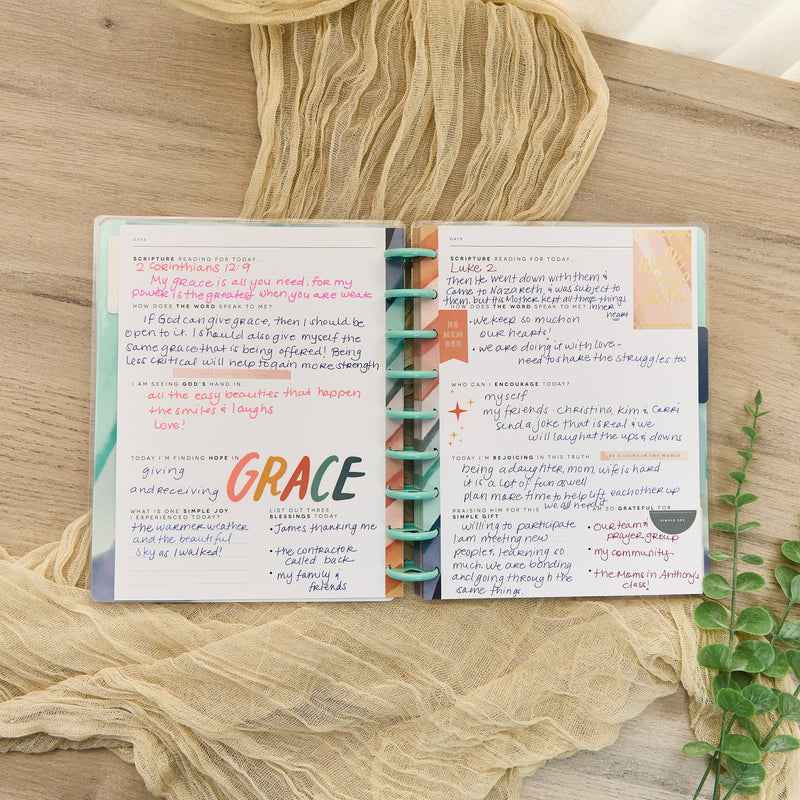 DATE
SCRIPTURE READING FOR TODAY...
2 Corinthians 12:9
My grace is all you need, for my
power is the greatest when you are weak
HOW DOES THE WORD SPEAK TO ME?
If God can give grace, then I should be
open to it. I should also give myself the
same grace that is being offered! Being
less critical will help to gain more strength
I AM SEEING GOD'S HAND IN...
all the easy beauties that happen
the smiles & laughs
Love!
TODAY I'M FINDING HOPE IN
giving
and receiving
GRACE
WHAT IS ONE SIMPLE JOY
I EXPERIENCED TODAY?
the warmer weather
and the beautiful
sky as I walked!
LIST OUT THREE
BLESSINGS TODAY...
• James thanking me
• the contractor
called back
• my family &
friends
DATE
SCRIPTURE READING FOR TODAY...
Luke 2
Then He went down with them &
came to Nazareth, & was subject to
them, but His Mother kept all these things
inner
heart
HOW DOES THE WORD SPEAK TO ME?
RE
MEM
BER
• we keep so much on
our hearts!
• we are doing it with love -
need to share the struggles too
WHO CAN I ENCOURAGE TODAY?
myself
my friends - Christina, Kim & Carri
send a joke that is real & we
will laugh at the ups & downs
TODAY I'M REJOICING IN THIS TRUTH...
BE A LIGHT IN THE WORLD
being a daughter, mom, wife is hard
it is a lot of fun as well
plan more time to help lift each other up
we all need it
PRAISING HIM FOR THIS
SIMPLE GIFT
willing to participate
I am meeting new
people, learning so
much. We are bonding
and going through the
same things.
I AM SO GRATEFUL FOR
SIMPLE JOY
• Our team &
prayer group
• my community
• the Moms in Anthony's
class!